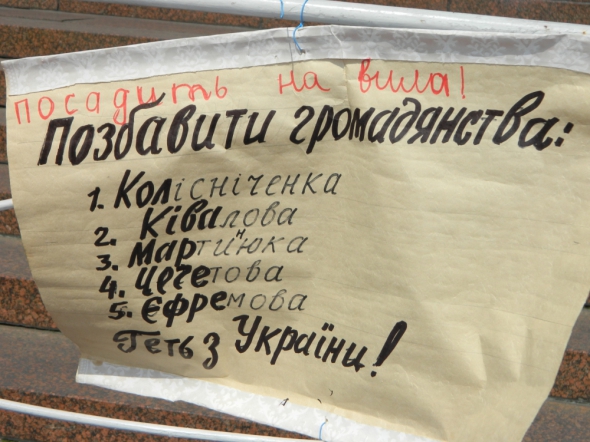 посадить на вила!
Позбавити громадянства:
1. Колісніченка
2. Ківалова
3. Мартинюка
4. Чечетова
5. Єфремова
Геть з України!